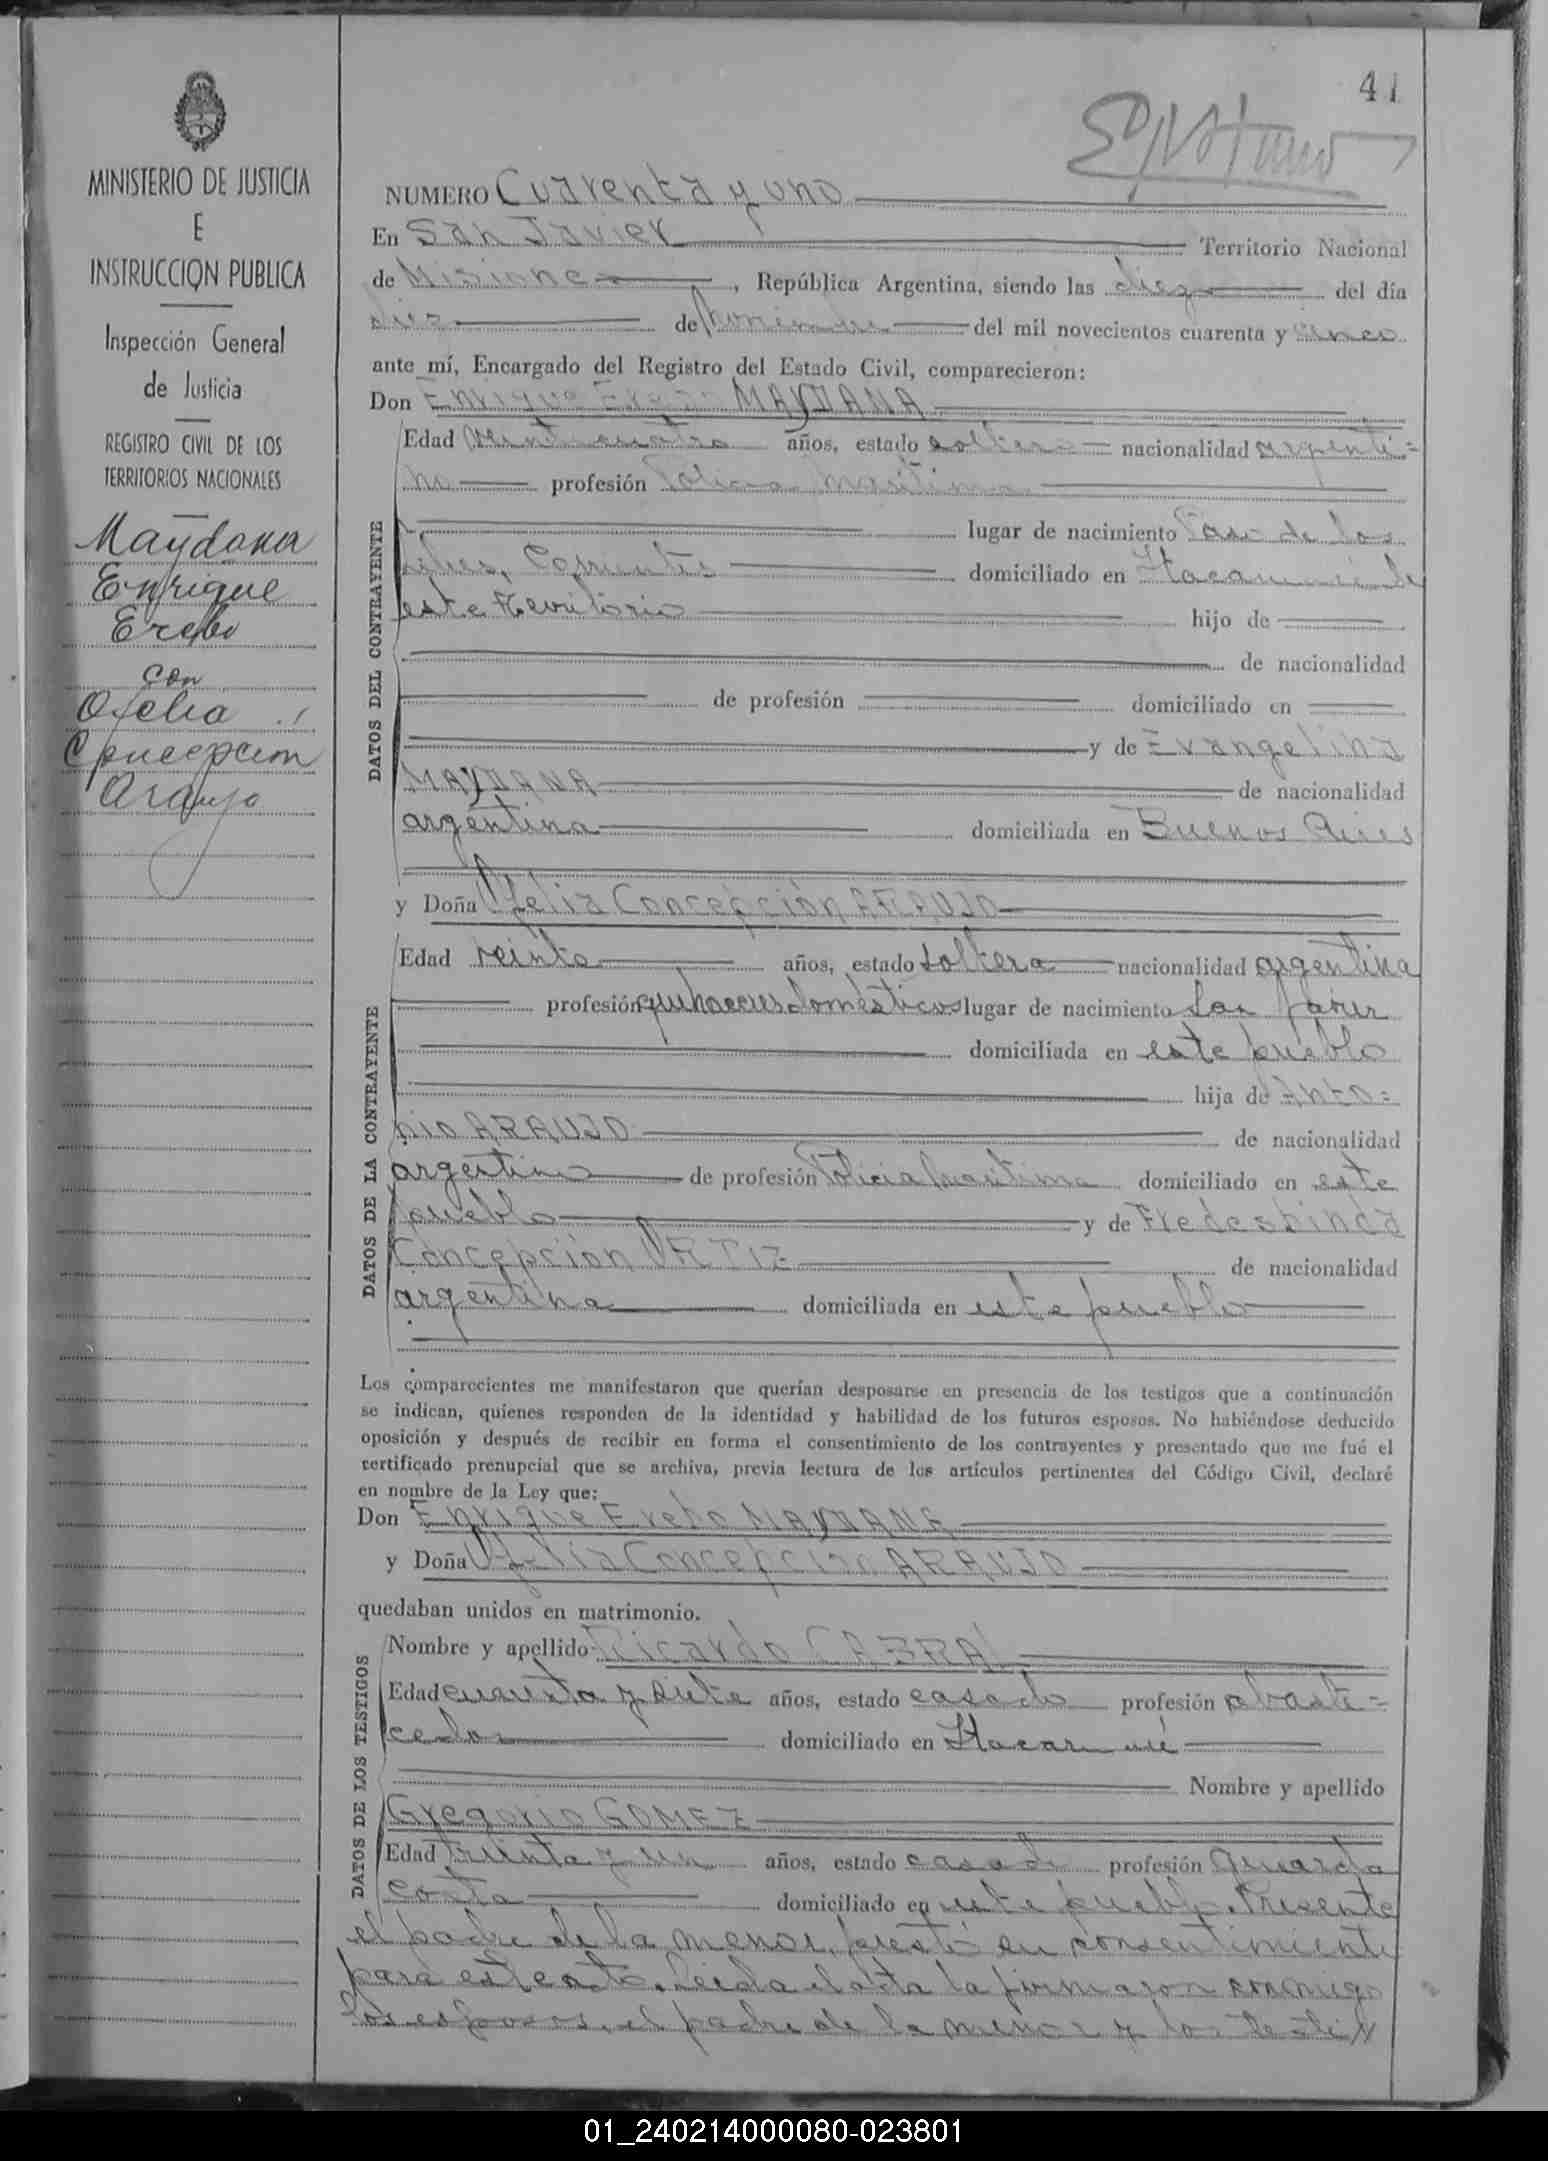 41
MINISTERIO DE JUSTICIA
E
INSTRUCCION PUBLICA
Inspección General
de Justicia
REGISTRO CIVIL DE LOS
TERRITORIOS NACIONALES
Maydana
Enrique
Erebo
con
Ofelia
Concepcion
Araujo
NUMERO Cuarenta y uno
En San Javier Territorio Nacional
de Misiones, República Argentina, siendo las diez del día
diez de Noviembre del mil novecientos cuarenta y cinco
ante mí, Encargado del Registro del Estado Civil, comparecieron:
Don Enrique Erebo MAYDANA
DATOS DEL CONTRAYENTE
Edad veinticuatro años, estado soltero nacionalidad argenti=
no profesión Policia Maritima
lugar de nacimiento Paso de los
Libres, Corrientes domiciliado en Itacaruaré de
este Territorio hijo de
de nacionalidad
de profesión domiciliado en
y de Evangelina
MAYDANA de nacionalidad
argentina domiciliada en Buenos Aires
y Doña Ofelia Concepción ARAUJO
DATOS DE LA CONTRAYENTE
Edad veinte años, estado soltera nacionalidad argentina
profesión quehaceres domésticos lugar de nacimiento San Javier
domiciliada en este pueblo
hija de Anto=
nio ARAUJO de nacionalidad
argentino de profesión Policia Maritima domiciliado en este
pueblo y de Fredesbinda
Concepción ORTIZ de nacionalidad
argentina domiciliada en este pueblo
Los comparecientes me manifestaron que querían desposarse en presencia de los testigos que a continuación
se indican, quienes responden de la identidad y habilidad de los futuros esposos. No habiéndose deducido
oposición y después de recibir en forma el consentimiento de los contrayentes y presentado que me fué el
certificado prenupcial que se archiva, previa lectura de los artículos pertinentes del Código Civil, declaré
en nombre de la Ley que:
Don Enrique Erebo MAYDANA
y Doña Ofelia Concepcion ARAUJO
quedaban unidos en matrimonio.
DATOS DE LOS TESTIGOS
Nombre y apellido Ricardo CABRAL
Edad cuarenta y siete años, estado casado profesión abaste=
cedor domiciliado en Itacaruaré
Nombre y apellido
Gregorio GOMEZ
Edad treinta y un años, estado casado profesión guarda
costa domiciliado en este pueblo. Presente
el padre de la menor, prestó su consentimiento
para este acto. Leida el acta la firmaron conmigo
los esposos, el padre de la menor y los testi
01_240214000080-023801